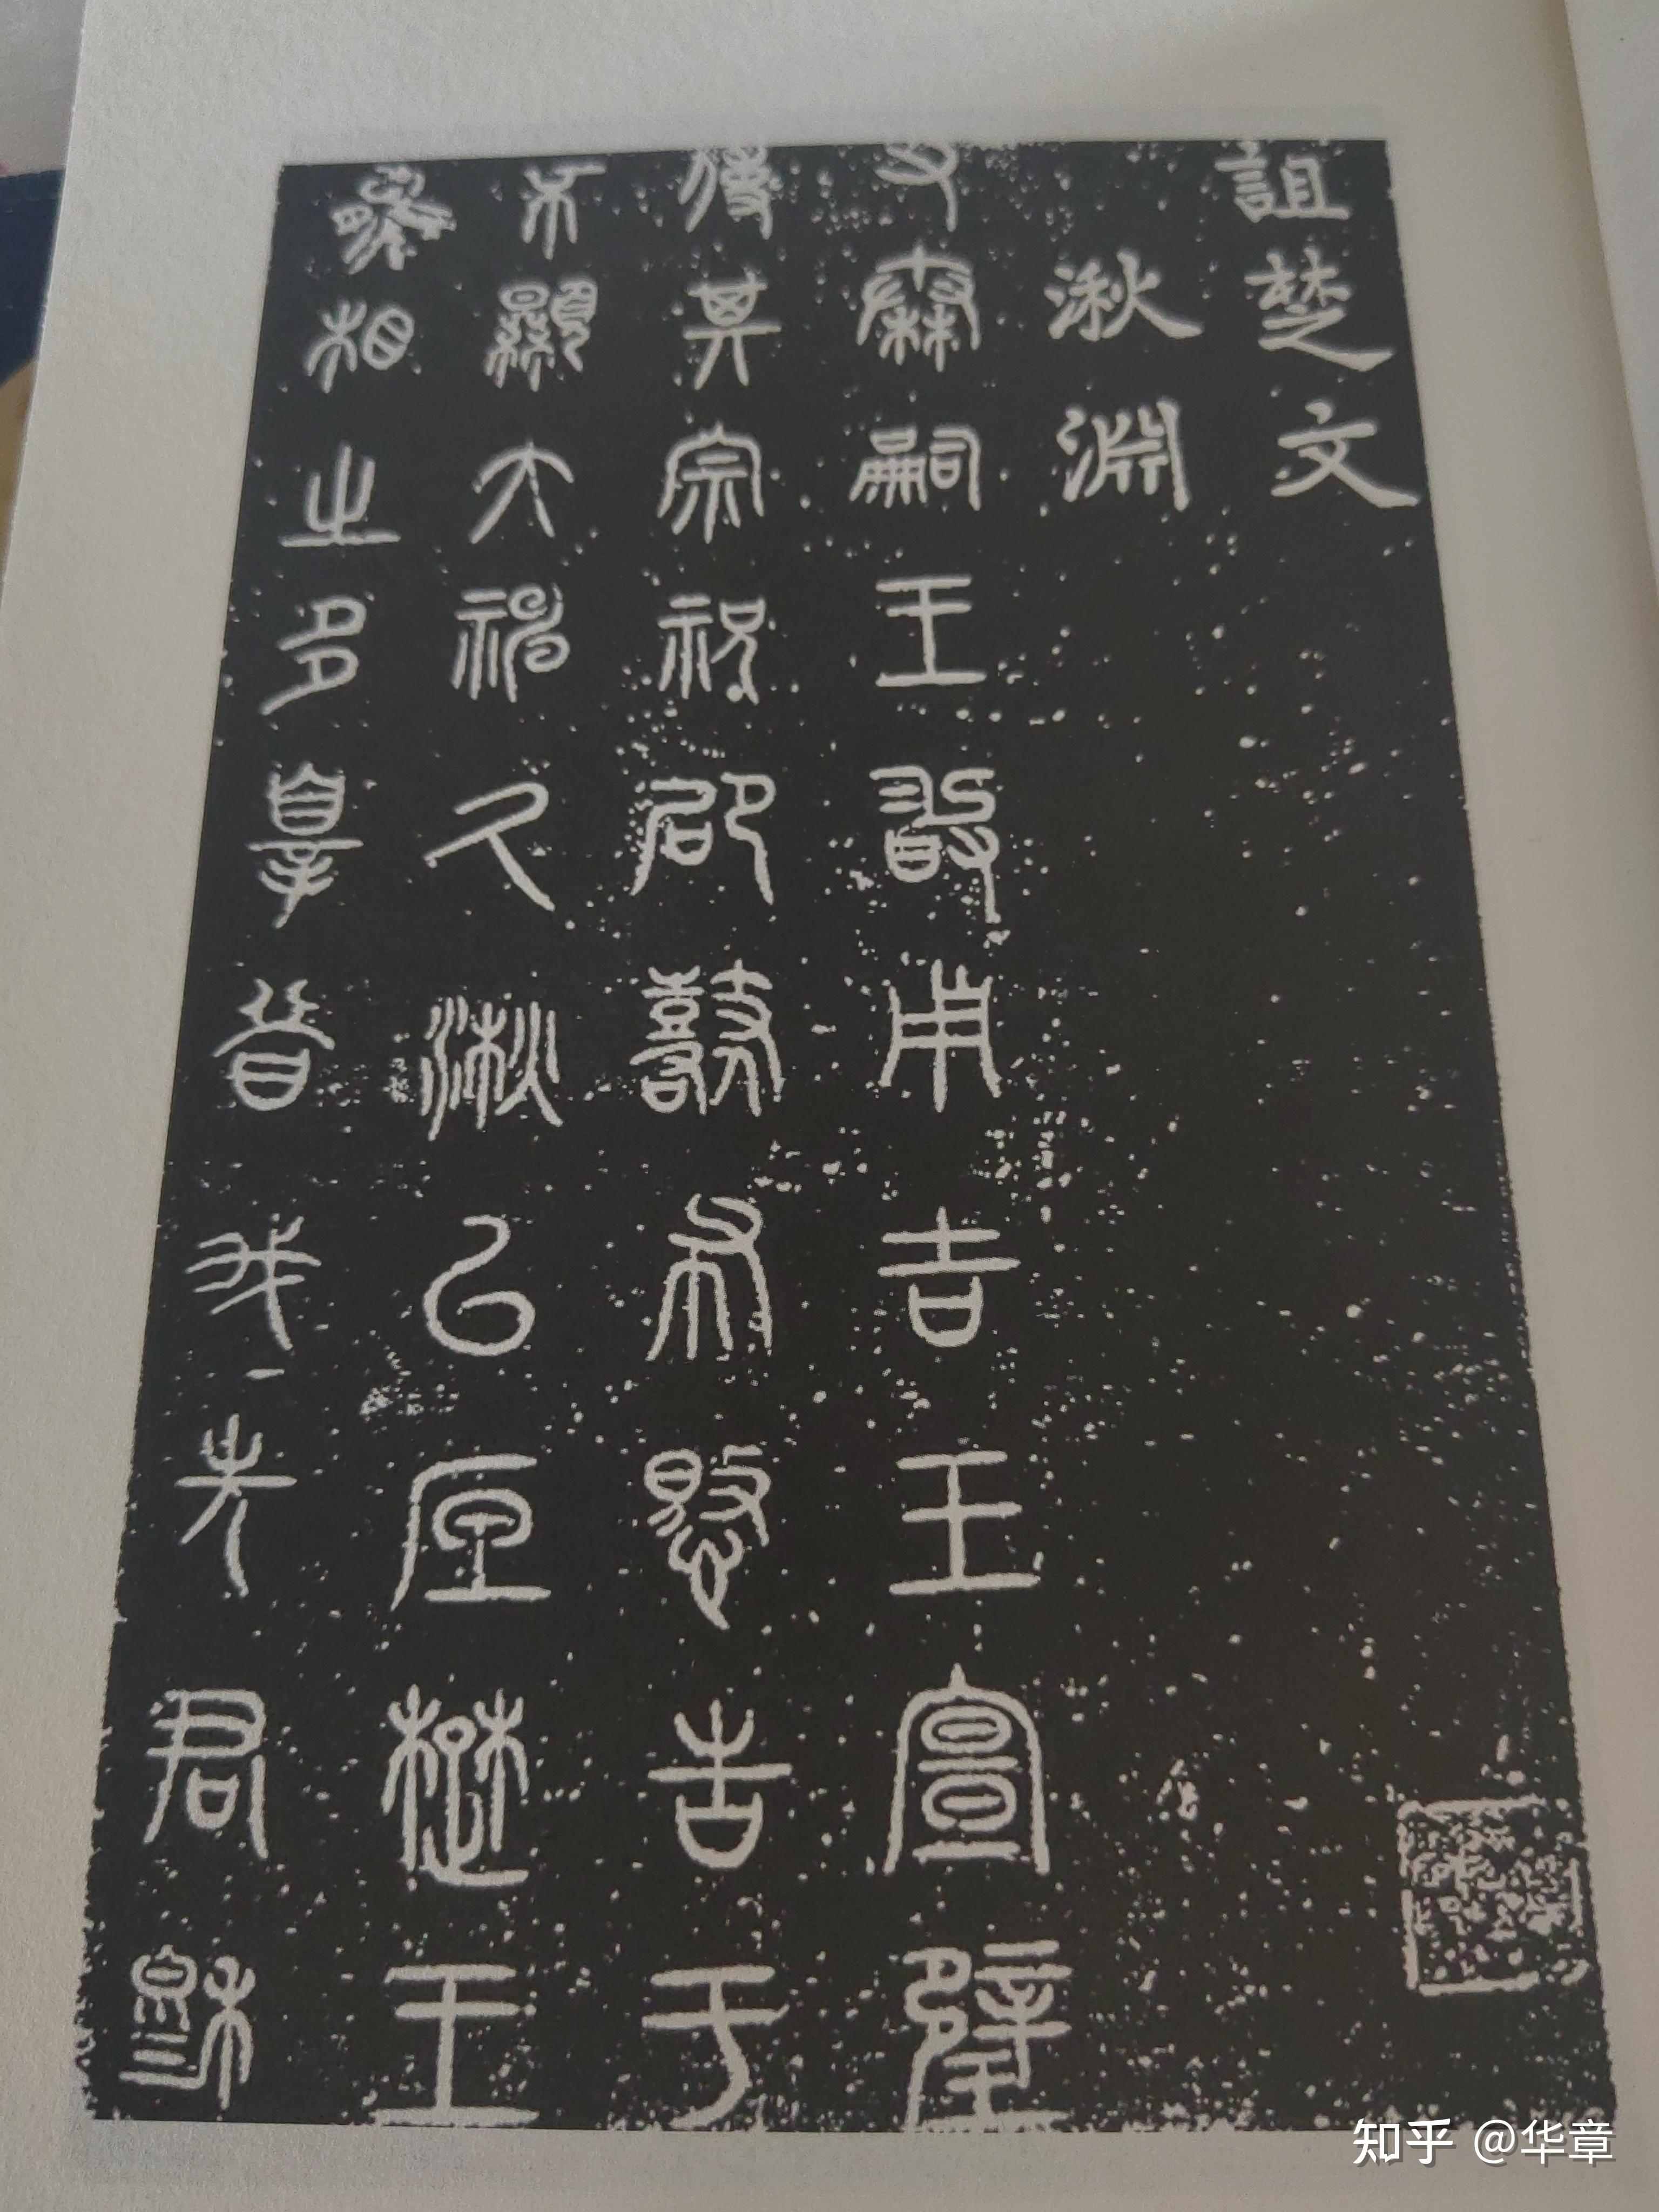 詛楚文
湫淵
又秦嗣王敢用吉玉宣璧
使其宗祝邵鼛布憝告于
不顯大神久湫以厎楚王
熊相之多辠昔我先君穆
知乎 @华章